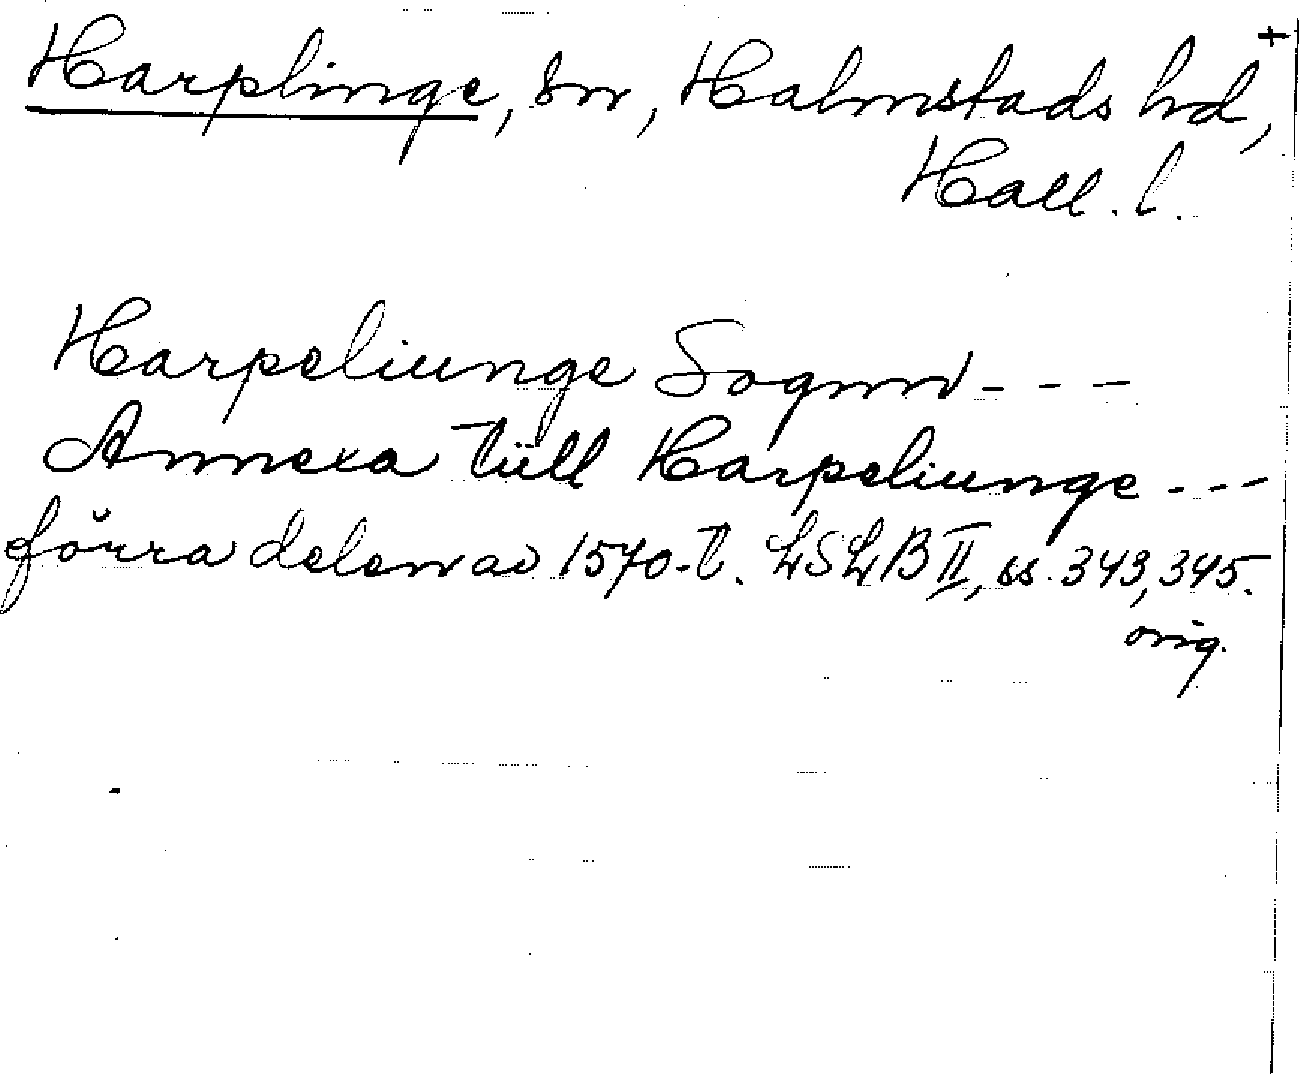 Harplinge, sn, Halmstads hd, +
Hall. l.
Harpeliunge Sognn - - -
Annexa tüll Harpeliunge - - -
förra delen av 1570-t. LSLB II, ss. 343, 345.
orig.